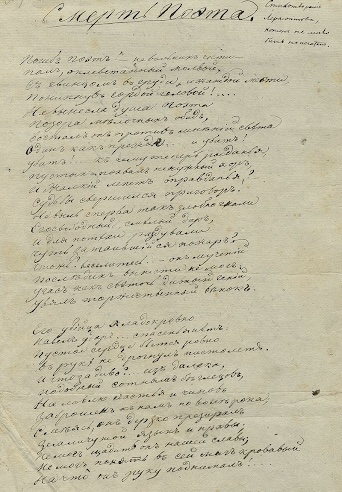 Смерть Поэта.
Стихотворение
Лермонтова,
Погибъ Поэтъ! — невольникъ чести —
палъ, оклеветанный молвой,
Съ свинцомъ въ груди, и жаждой мести
Поникнувъ гордой головой!....
Не вынесла душа Поэта
Позора мелочныхъ обидъ,
возсталъ онъ противъ мнѣній свѣта
Одинъ какъ прежде... и убитъ!
убитъ! къ чему теперь рыданья,
пустыхъ похвалъ ненужный хоръ,
И жалкій лепетъ оправданья?
Судьбы свершился приговоръ!
Не вы ль сперва такъ злобно гнали
Его свободный, смѣлый даръ,
И для потѣхи раздували
Чуть затаившійся пожаръ?
Чтожъ? веселитесь... — онъ мученій
Послѣднихъ вынести не могъ:
угасъ какъ свѣточь дивный геній,
увялъ торжественный вѣнокъ.
Его убійца хладнокровно
Навелъ ударъ... спасенья нѣтъ:
Пустое сердце бьется ровно
Въ рукѣ не дрогнулъ пистолетъ.
И что за диво?... изъ далека,
подобный сотнямъ бѣглецовъ,
На ловлю счастья и чиновъ
Заброшенъ къ намъ по волѣ рока;
Смѣясь, онъ дерзко презиралъ
Земли чужой языкъ и нравы;
Не могъ щадить онъ нашей славы;
Не могъ понять въ сей мигъ кровавый
На что онъ руку поднималъ.....